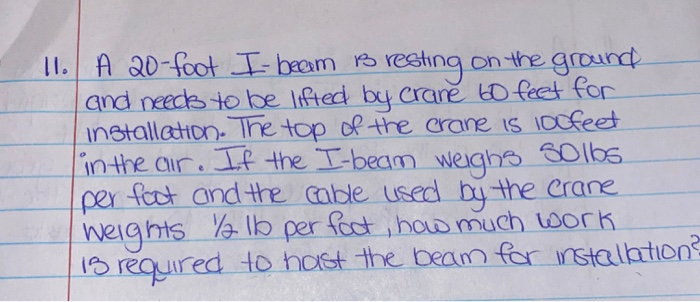 11. A 20-foot I-beam is resting on the ground
and needs to be lifted by crane 60 feet for
installation. The top of the crane is 100feet
in the air. If the I-beam weighs 50lbs
per foot and the cable used by the crane
weights ½ lb per foot, how much work
is required to hoist the beam for installation?